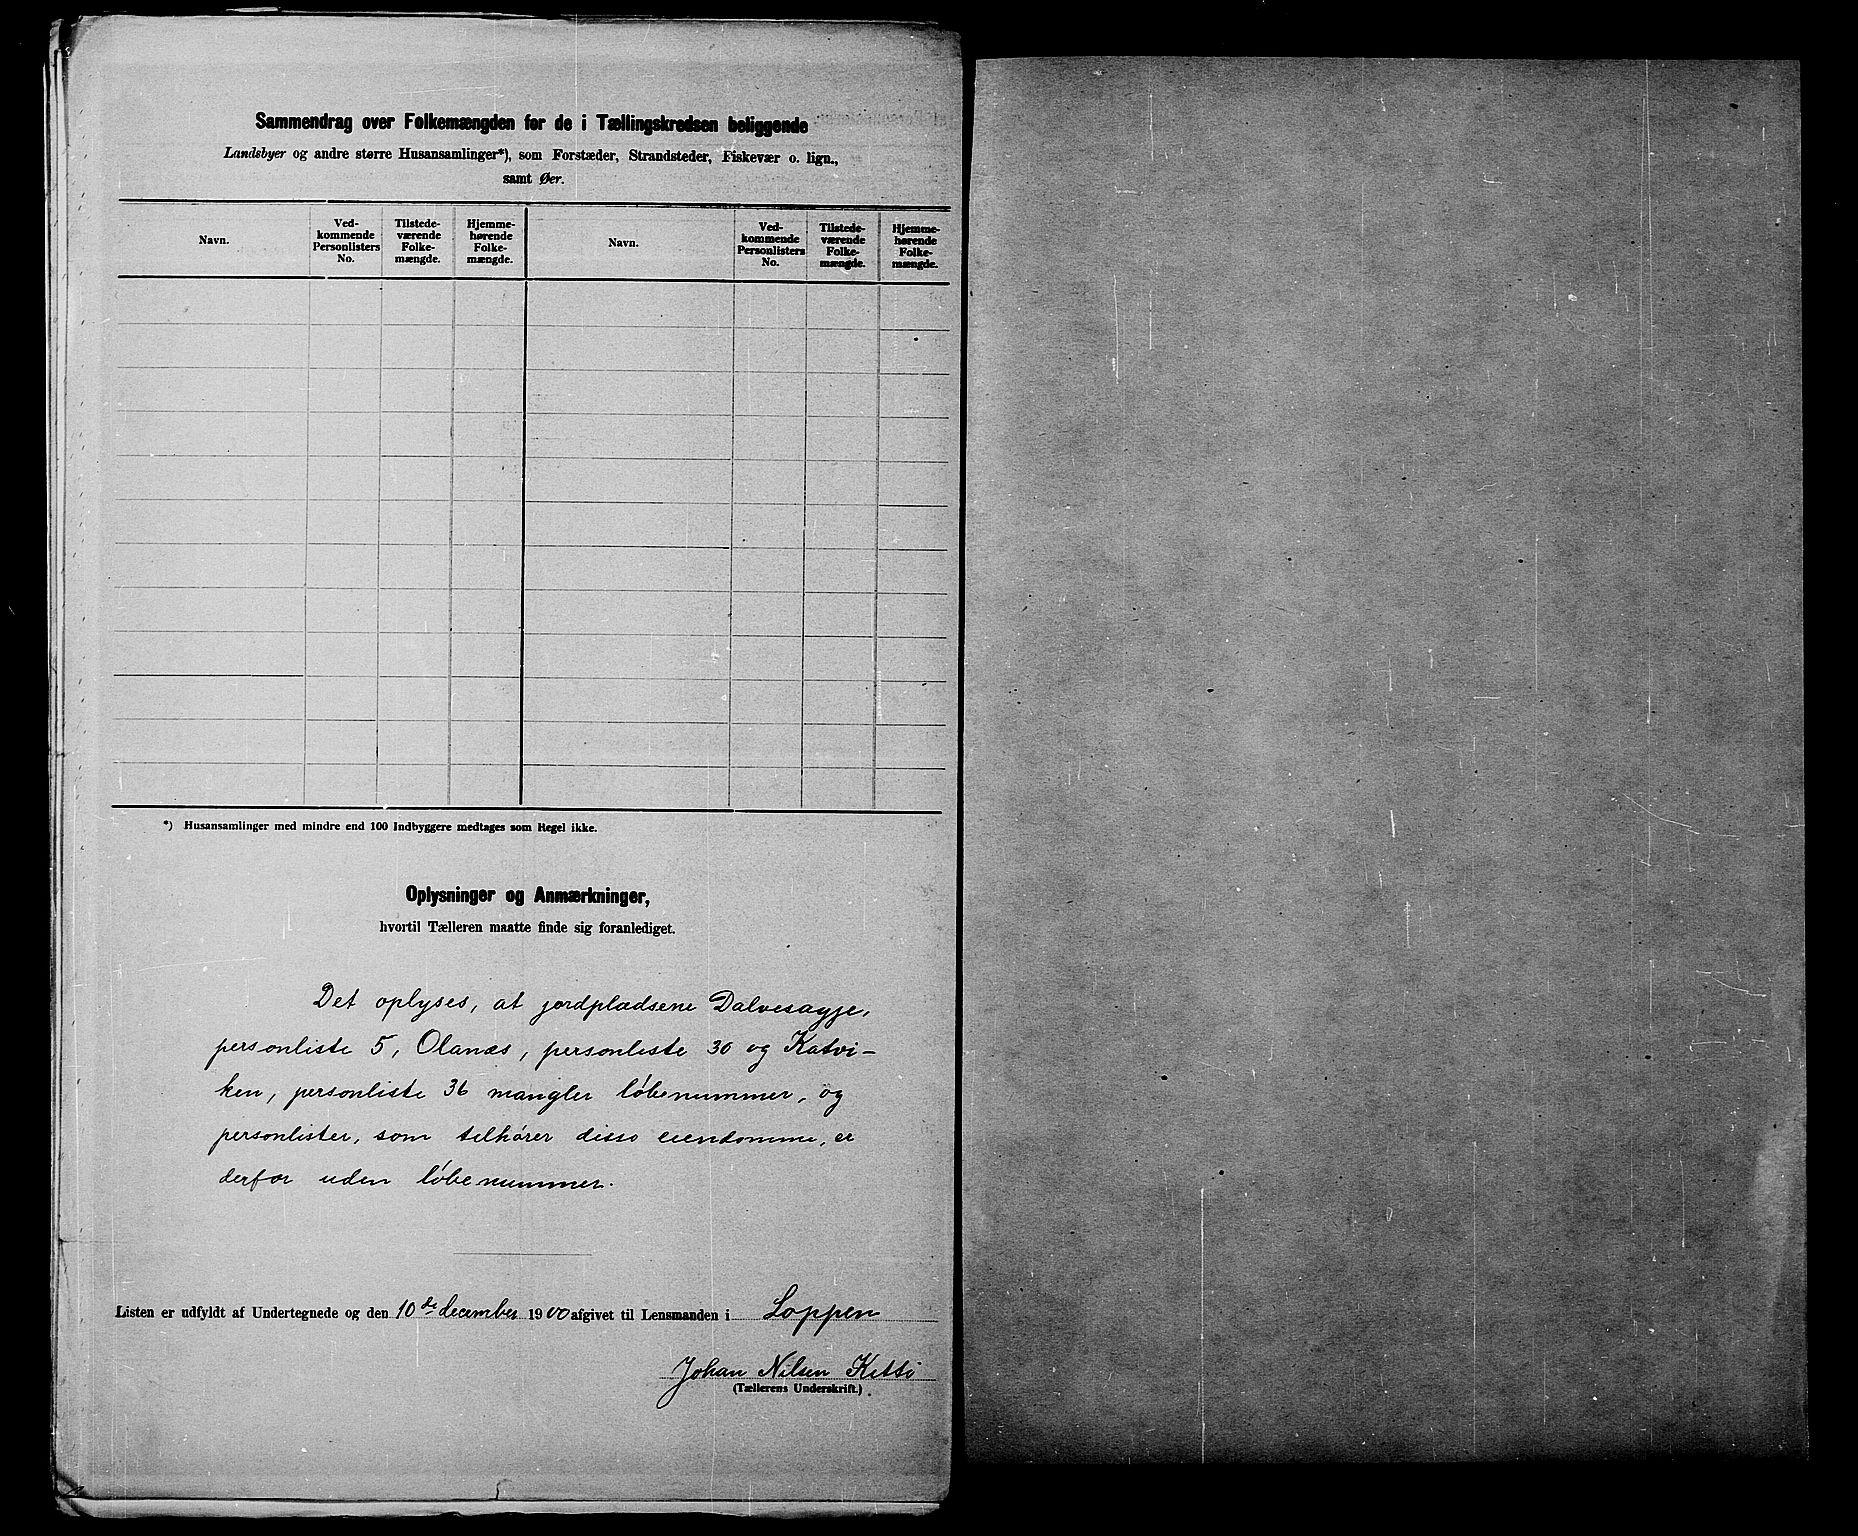 Sammendrag over Folkemængden for de i Tællingskredsen beliggende
Landsbyer og andre større Husansamlinger*), som Forstæder, Strandsteder, Fiskevær o. lign.,
samt Øer.
Navn.
Ved-
kommende
Personlisters
No.
Tilstede-
værende
Folke-
mængde.
Hjemme-
hørende
Folke-
mængde.
Navn.
Ved-
kommende
Personlisters
No.
Tilstede-
værende
Folke-
mængde.
Hjemme-
hørende
Folke-
mængde.
*) Husansamlinger med mindre end 100 Indbyggere medtages som Regel ikke.
Oplysninger og Anmærkninger,
hvortil Tælleren maatte finde sig foranlediget.
Det oplyses, at jordpladsene Dalvesagje,
personliste 5, Olanæs, personliste 30 og Katvi-
ken, personliste 36 mangler löbenummer, og
personlister, som tilhörer disse eiendomme, er
derfor uden löbenummer.
Listen er udfyldt af Undertegnede og den 10de december 1900 afgivet til Lensmanden i Loppen
Johan Nilsen Kitti
(Tællerens Underskrift.)